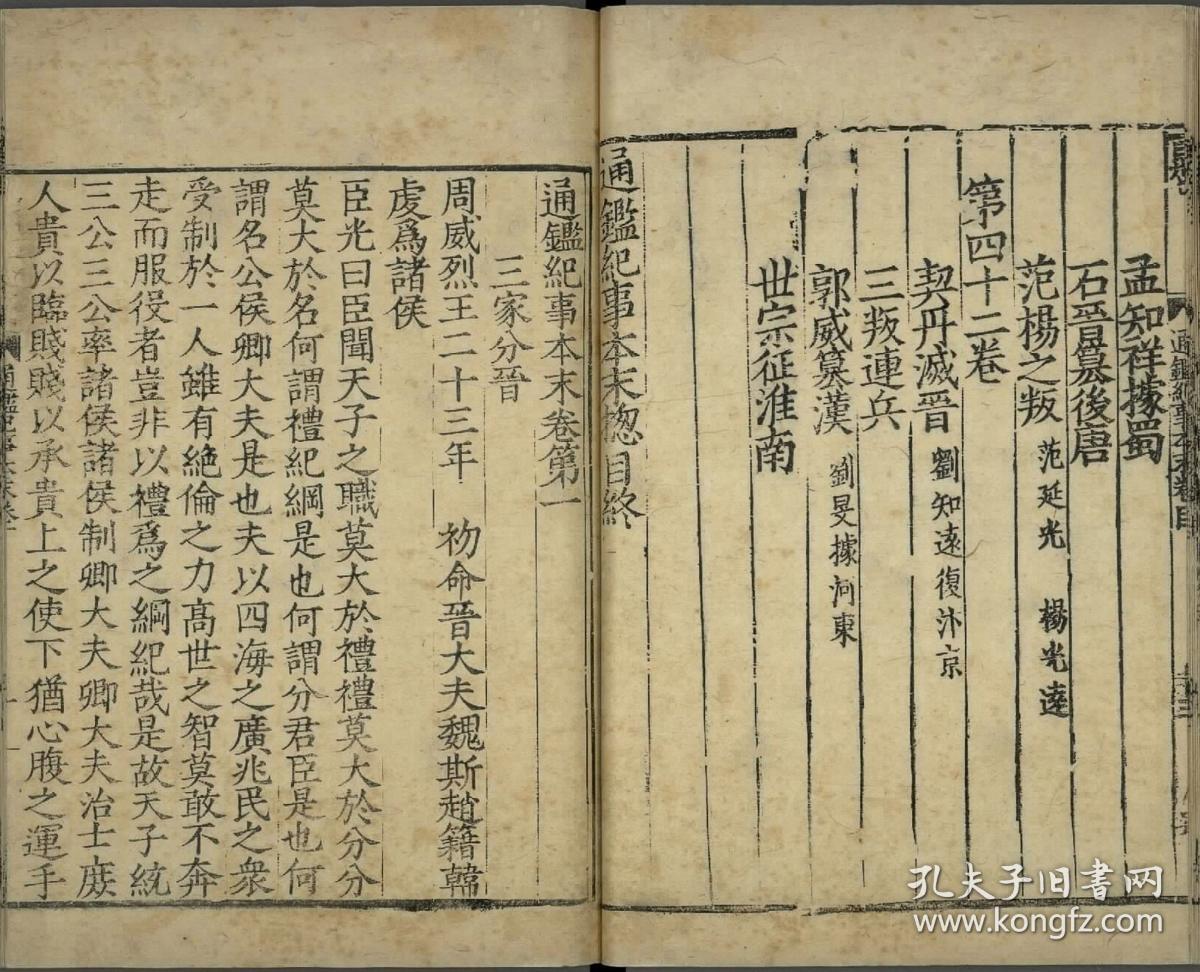 孟知祥據蜀
石晉篡後唐
范楊之叛 范延光 楊光遠
第四十二卷
契丹滅晉 劉知遠復汴京
三叛連兵
郭威篡漢 劉旻據河東
世宗征淮南
通鑑紀事本末揔目終
通鑑紀事本末卷第一
三家分晉
周威烈王二十三年 初命晉大夫魏斯趙籍韓
虔爲諸侯
臣光曰臣聞天子之職莫大於禮禮莫大於分分
莫大於名何謂禮紀綱是也何謂分君臣是也何
謂名公侯卿大夫是也夫以四海之廣兆民之衆
受制於一人雖有絶倫之力高世之智莫敢不奔
走而服役者豈非以禮爲之綱紀哉是故天子統
三公三公率諸侯諸侯制卿大夫卿大夫治士庶
人貴以臨賤賤以承貴上之使下猶心腹之運手
孔夫子旧书网
www.kongfz.com